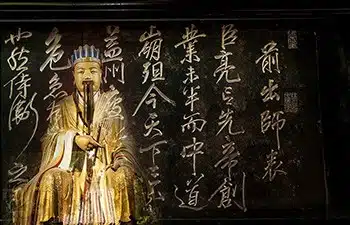 前出師表
臣亮言先帝創
業未半而中道
崩殂今天下三
益州疲
危急
也然侍衛之